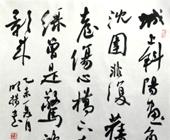 城上斜陽畫
沈園非復舊
臺傷心橋下
綠曾是驚鴻
影來
乙未春月